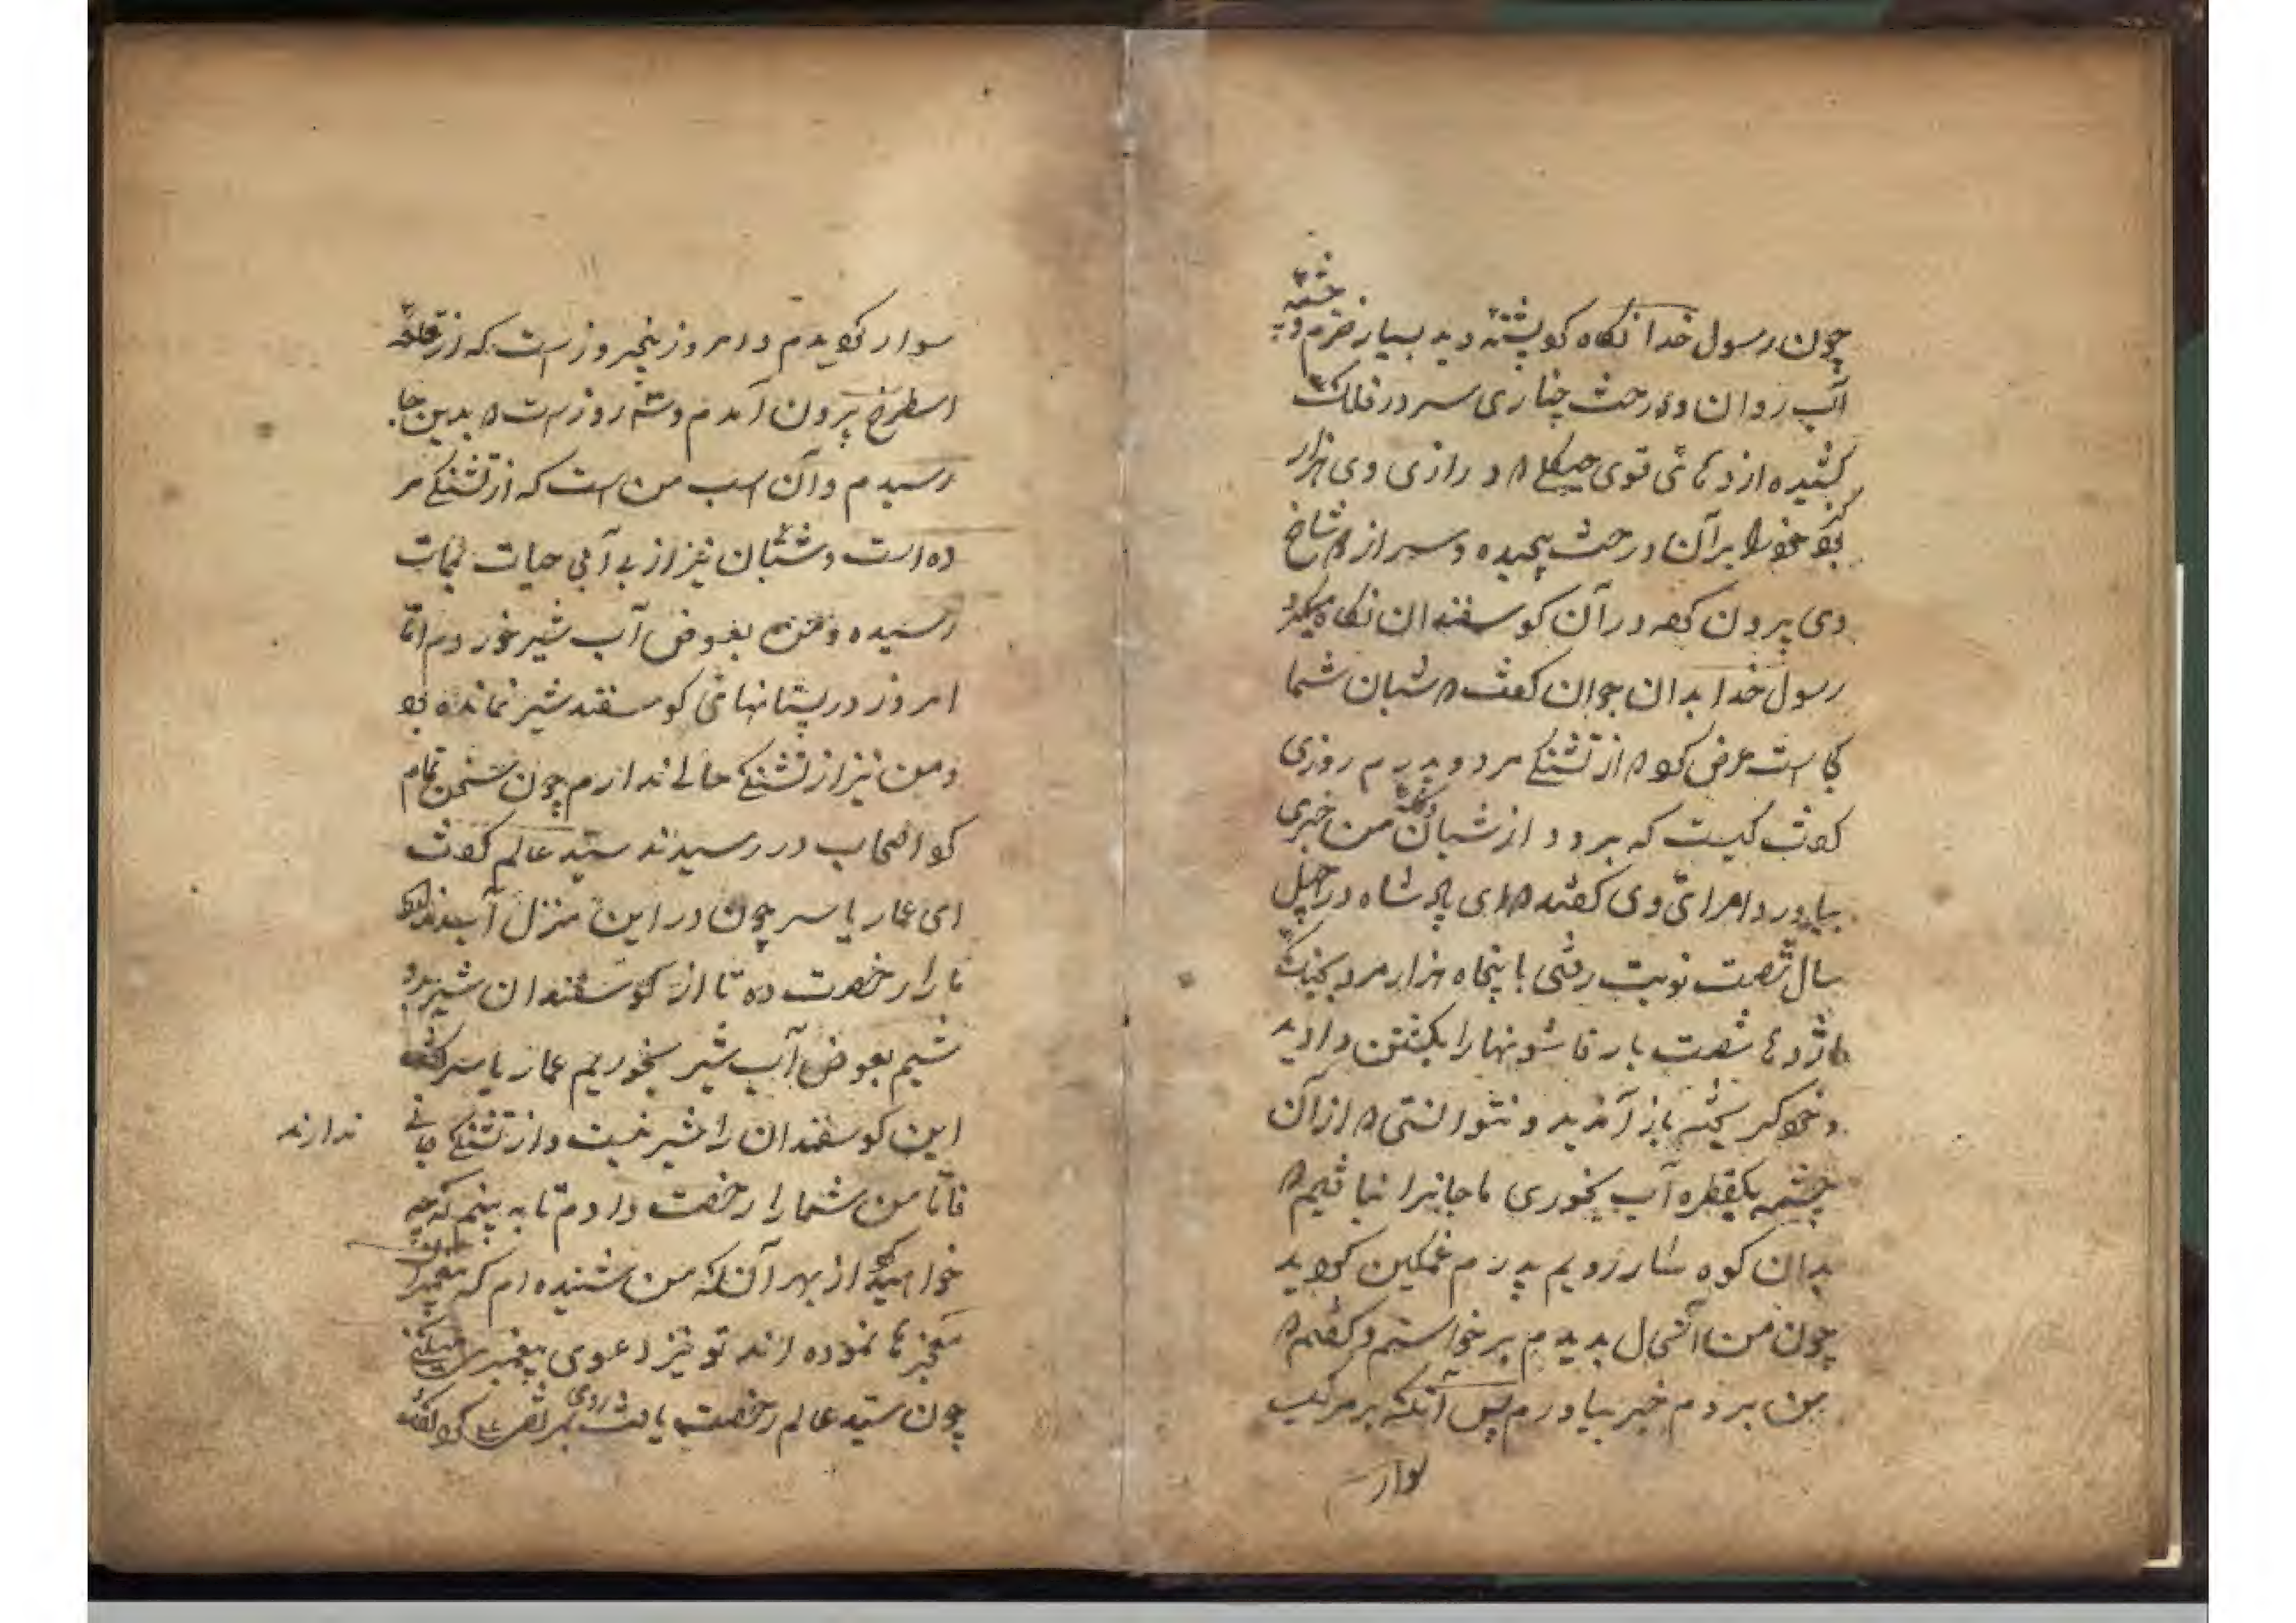 چون رسول خدا نکاه کو پشته دید بسیار خرم و چشمه
آب روان و درخت چناری سر در فلک
کشیده اژدهائی قوی هیکل که درازی وی هزار
کز بود خود را بر آن درخت پیچیده و سر از شاخ
وی بیرون کرده در آن کوسفندان نکاه میکرد
رسول خدا بدان جوان کفت که شبان شما
کجاست عرض کرد که از تشنکی مرد و پدرم روزی
کفت کیست که برود از شبان من خبری
بیاورد امرائی وی کفتند که ای پادشاه در چهل
سال شصت نوبت رفتی با پنجاه هزار مرد بجنک
اژدها شصت بار قاشونها را بکشتن دادید
و خود کریخته باز آمدید و نتوانستی که از آن
چشمه یکقطره آب بخوری ما جانرا نیافتیم که
بدان کوه سار رویم پدرم غمکین کردید
چون من آنحال بدیدم برخواستم و کفتم که
من بردم خبر بیاورم پس آنکه بر مرکب
سوار
سوار کردیدم و امروز پنجروز است که از قلعه
اسطرخ بیرون آمدم و سه روز است که بدین جا
رسیدم و آن اسب من است که از تشنکی مر
ده است و شبان نیز از بی آبی حیات بممات
رسیده و من بعوض آب شیر خوردم اما
امروز در پستانهائی کوسفند شیر نمانده بود
و من نیز از تشنکی حالی ندارم چون سخن تمام
کرد اصحاب در رسیدند سید عالم کفت
ای عمار یاسر چون در این منزل آب
ما را رخصت ده تا از کوسفندان شیر بدو
شیم بعوض آب شیر بخوریم عمار یاسر کفت
این کوسفندان را شیر نیست و از تشنکی جانی ندارند
فاما من شما را رخصت دادم تا به بینم که چه
خواهید کرد از بهر آنکه من شنیده ام که پیغمبران
معجزها نموده اند تو نیز دعوی پیغمبری میکنی
چون سید عالم رخصت یافت روی بمرتضی علی کرد کفت